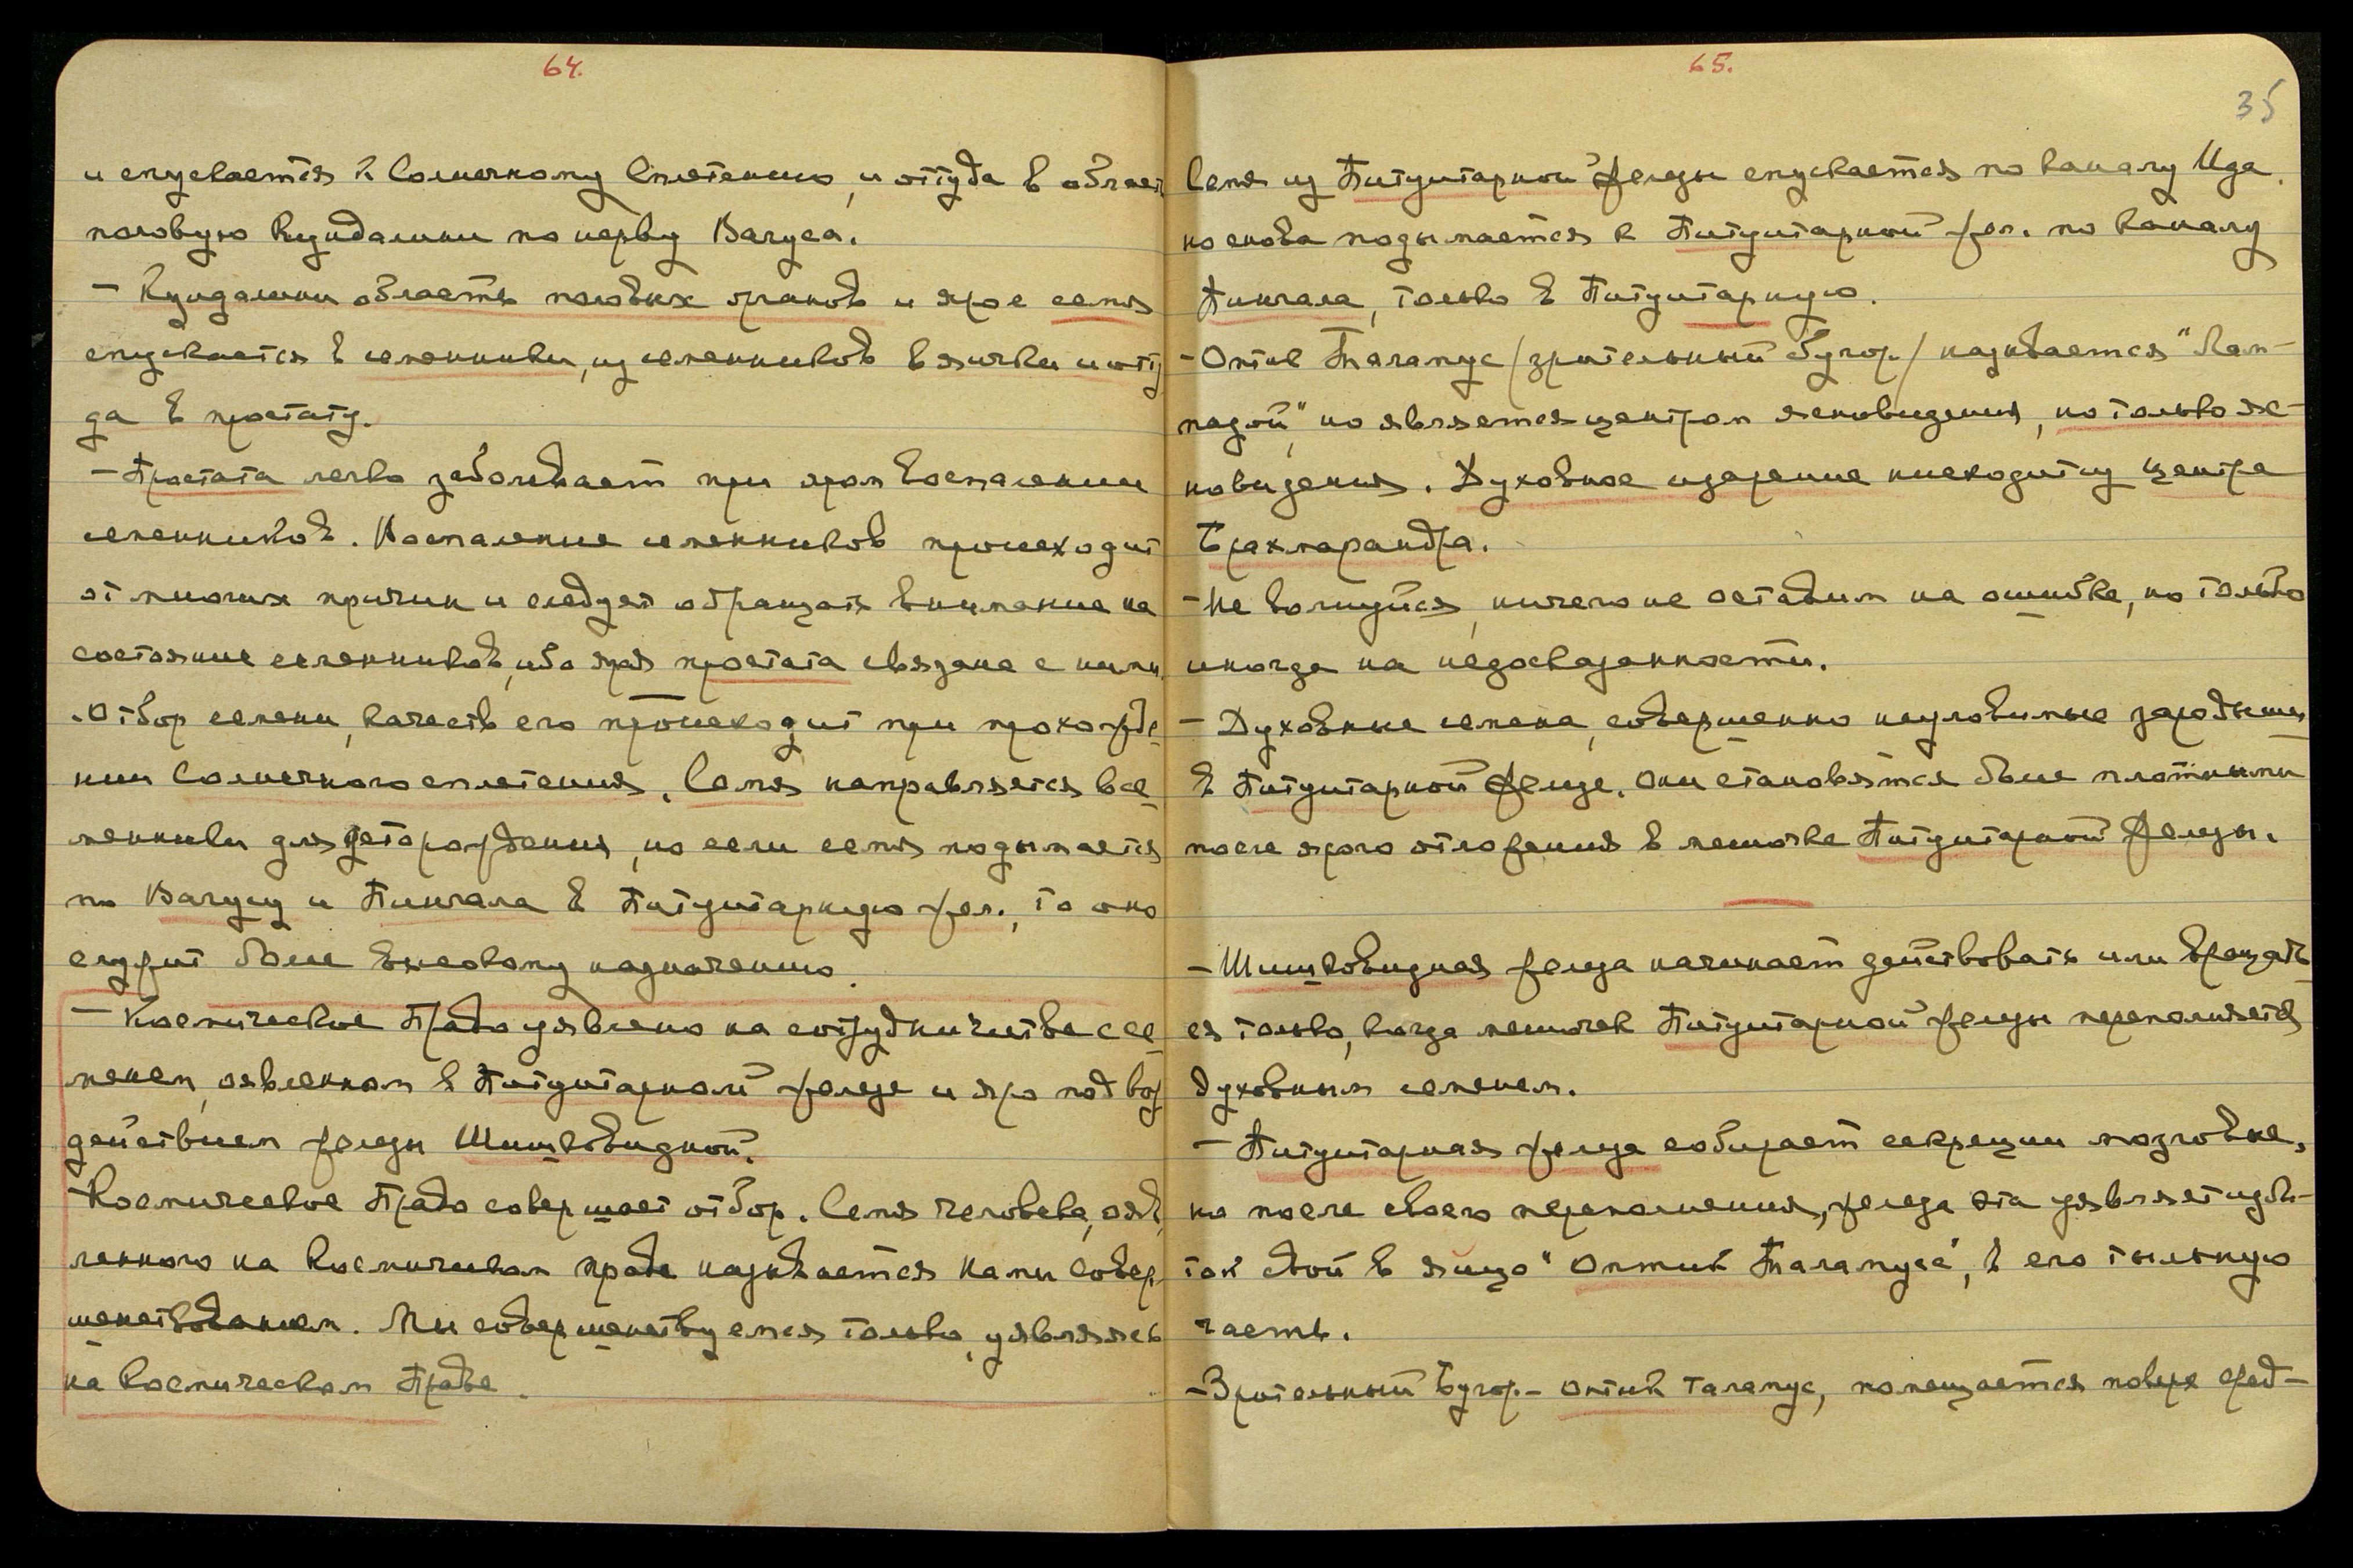 64.
и спускается к Солнечному Сплетению, и оттуда в област
половую Кундалини по нерву Вагуса.
– Кундалини область половых органов и ярое семя
спускается в семенники, из семенников в яички и отту
да в простату.
– Простата легко заболевает при яром воспалении
семенников. Воспаление семенников происходит
от многих причин и следует обращать внимание на
состояние семенников, ибо ярая простата связана с ними.
. Отбор семени, качеств его происходит при прохожде
нии Солнечного сплетения. Семя направляется в се
менники для деторождения, но если семя подымается
по Вагусу и Пингала в Питуитарную жел., то оно
служит более высокому назначению.
– Космическое Право уявлено на сотрудничестве с се
менем, оявленном в Питуитарной железе и яро под воз
действием железы Шишковидной.
– Космическое Право совершает отбор. Семя человека, ояв
ленного на Космическом праве называется Нами Совер
шенствованием. Мы совершенствуемся только, уявляясь
на Космическом Праве.
65.
35
Семя из Питуитарной железы спускается по каналу Ида,
но снова подымается к Питуитарной жел. по каналу
Пингала, только в Питуитарную.
– Оптик Таламус /зрительный бугор/ называется "Лам–
падой", но является центром ясновидения, но только яс–
новидения. Духовное озарение нисходит из центра
Брахмарандра.
– Не волнуйся, ничего не оставим на ошибке, но только
иногда на недосказанности.
– Духовные семена, совершенно неуловимые зародыши
в Питуитарной железе. Они становятся более плотными
после ярого отложения в мешочке Питуитарной железы.
– Шишковидная железа начинает действовать или вращать
ся только, когда мешочек Питуитарной железы переполняется
духовным семенем.
– Питуитарная железа собирает секреции мозговые,
но после своего переполнения, железа эта уявляет избы–
ток свой в яйцо "Оптик Таламуса", в его тыльную
часть.
– Зрительный Бугор – оптик таламус, помещается поверх сред–